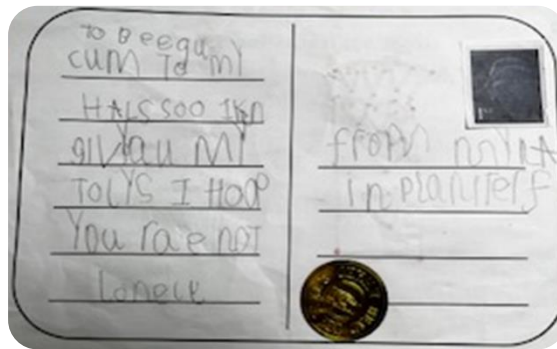 to Beegu
cum To mi
HALS soo IKn
givyau MY
TOLYS I HOOP
You rae not
Lonele
from myra
in planiterf